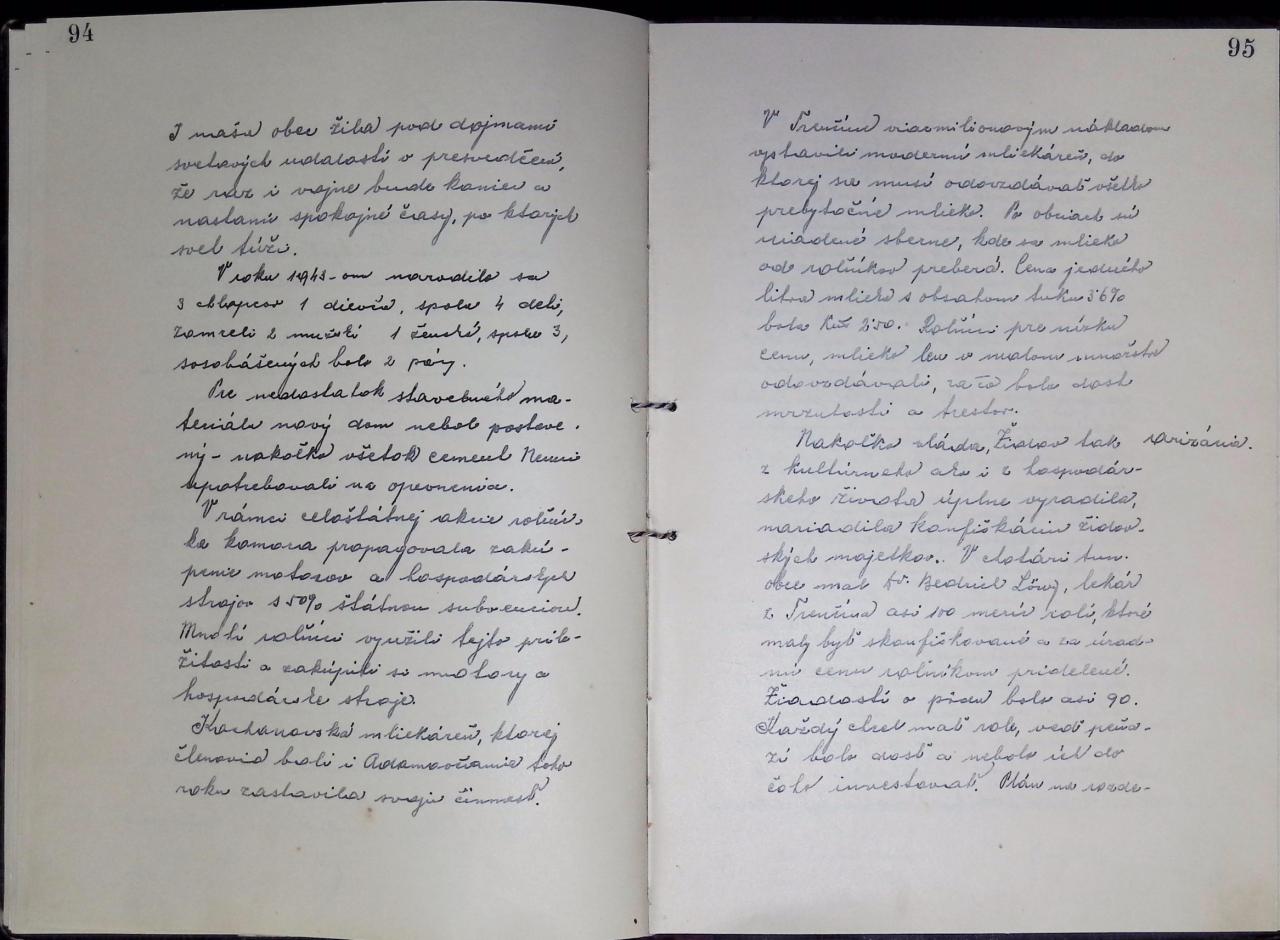 94
I naša obec žila pod dojmami
svetových udalostí v presvedčení,
že raz i vojne bude koniec a
nastanú spokojné časy, po ktorých
svet túži.
V roku 1943-om narodilo sa
3 chlapcov 1 dievča, spolu 4 deti,
zomreli 2 mužskí 1 ženská, spolu 3,
sosobášených bolo 2 páry.
Pre nedostatok stavebného ma-
teriálu nový dom nebol postave-
ný - nakoľko všetok cement Nemci
upotrebovali na opevnenia.
V rámci celoštátnej akcie roľníc-
ka komora propagovala zakú-
penie motorov a hospodárskych
strojov s 50% štátnou subvenciou.
Mnohí roľníci využili tejto príle-
žitosti a zakúpili si motory a
hospodárske stroje.
Kochanovská mliekáreň, ktorej
členovia boli i Adamovčania toho
roku zastavila svoju činnosť.
95
V Trenčíne viacmilionovým nákladom
vystavili modernú mliekáreň, do
ktorej sa musí odovzdávať všetko
prebytočné mlieko. Po obciach sú
uriadené sberne, kde sa mlieko
od roľníkov preberá. Cena jedného
litra mlieka s obsahom tuku 3'6%
bola Kčs 2'50. Roľníci pre nízku
cenu, mlieko len v malom množstve
odovzdávali, začo bolo dosť
mrzutostí a trestov.
Nakoľko vláda, Židov tak arizácia.
z kultúrneho ako i z hospodár-
skeho života úplne vyradila,
nariadila konfiškáciu židov-
ských majetkov. V chotári tun.
obce mal Dr. Bedrich Löwy, lekár
z Trenčína asi 100 meríc rolí, ktoré
maly byť skonfiškované a za úrad-
nú cenu roľníkom pridelené.
Žiadostí o pôdu bolo asi 90.
Každý chcel mať role, veď peňa-
zí bolo dosť a nebolo ich do
čoho investovať. Plán na rozde-